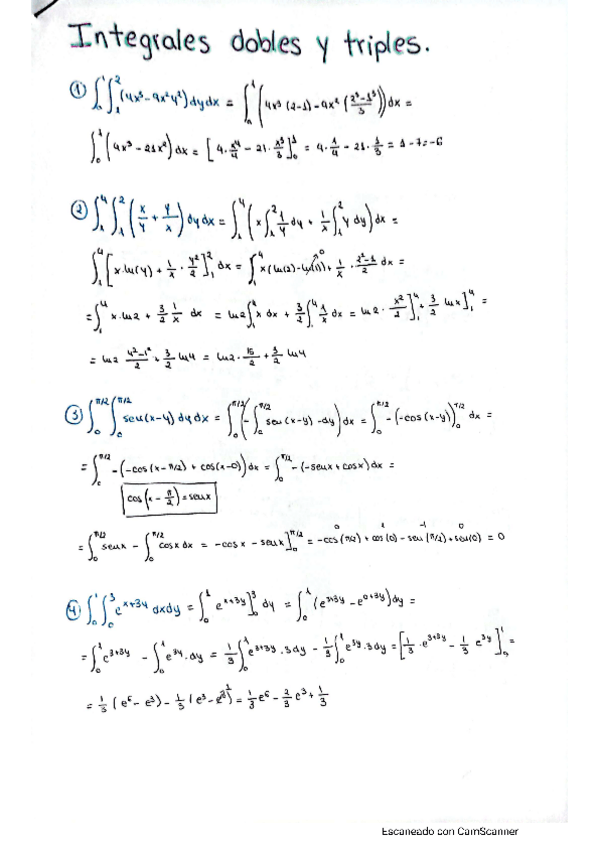 Integrales dobles y triples.
① ∫₀¹∫₁² (4x³ - 9x²y²) dy dx = ∫₀¹ (4x³ (2-1) - 9x² (2³-1³/3)) dx =
∫₀¹ (4x³ - 21x²) dx = [4·x⁴/4 - 21·x³/3]₀¹ = 4·1/4 - 21·1/3 = 1-7=-6
② ∫₁⁴∫₁² (x/y + y/x) dy dx = ∫₁⁴ (x∫₁² 1/y dy + 1/x ∫₁² y dy) dx =
∫₁⁴ [x·ln(y) + 1/x · y²/2]₁² dx = ∫₁⁴ x(ln(2)-ln(1)) + 1/x · 2²-1/2 dx =
=∫₁⁴ x·ln2 + 3/2 1/x dx = ln2∫₁⁴ x dx + 3/2∫₁⁴ 1/x dx = ln2· x²/2]₁⁴ + 3/2 lnx]₁⁴ =
= ln2 4²-1²/2 + 3/2 ln4 = ln2· 15/2 + 3/2 ln4
③ ∫₀^π/2 ∫₀^π/2 sen(x-y) dy dx = ∫₀^π/2 (-∫₀^π/2 sen(x-y) -dy) dx = ∫₀^π/2 -(-cos(x-y))₀^π/2 dx =
=∫₀^π/2 -(-cos(x-π/2) + cos(x-0)) dx = ∫₀^π/2 -(-senx + cosx) dx =
cos(x - π/2) = senx
=∫₀^π/2 senx - ∫₀^π/2 cosx dx = -cosx - senx]₀^π/2 = -cos(π/2) + cos(0) - sen(π/2) + sen(0) = 0
④ ∫₀¹∫₀³ e^x+3y dx dy = ∫₀¹ e^x+3y]₀³ dy = ∫₀¹ (e^3+3y - e^0+3y) dy =
=∫₀¹ e^3+3y - ∫₀¹ e^3y · dy = 1/3∫₀¹ e^3+3y · 3 dy - 1/3∫₀¹ e^3y · 3 dy = [1/3 · e^3+3y - 1/3 e^3y]₀¹ =
= 1/3 (e⁶ - e³) - 1/3 (e³ - e⁰) = 1/3 e⁶ - 2/3 e³ + 1/3
Escaneado con CamScanner